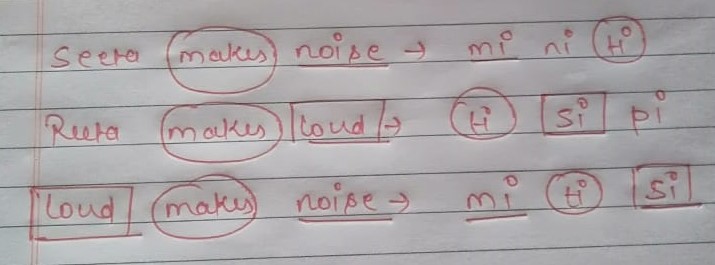 Seeta makes noise → mi ni ti
Reeta makes loud → ti si pi
loud makes noise → mi ti si